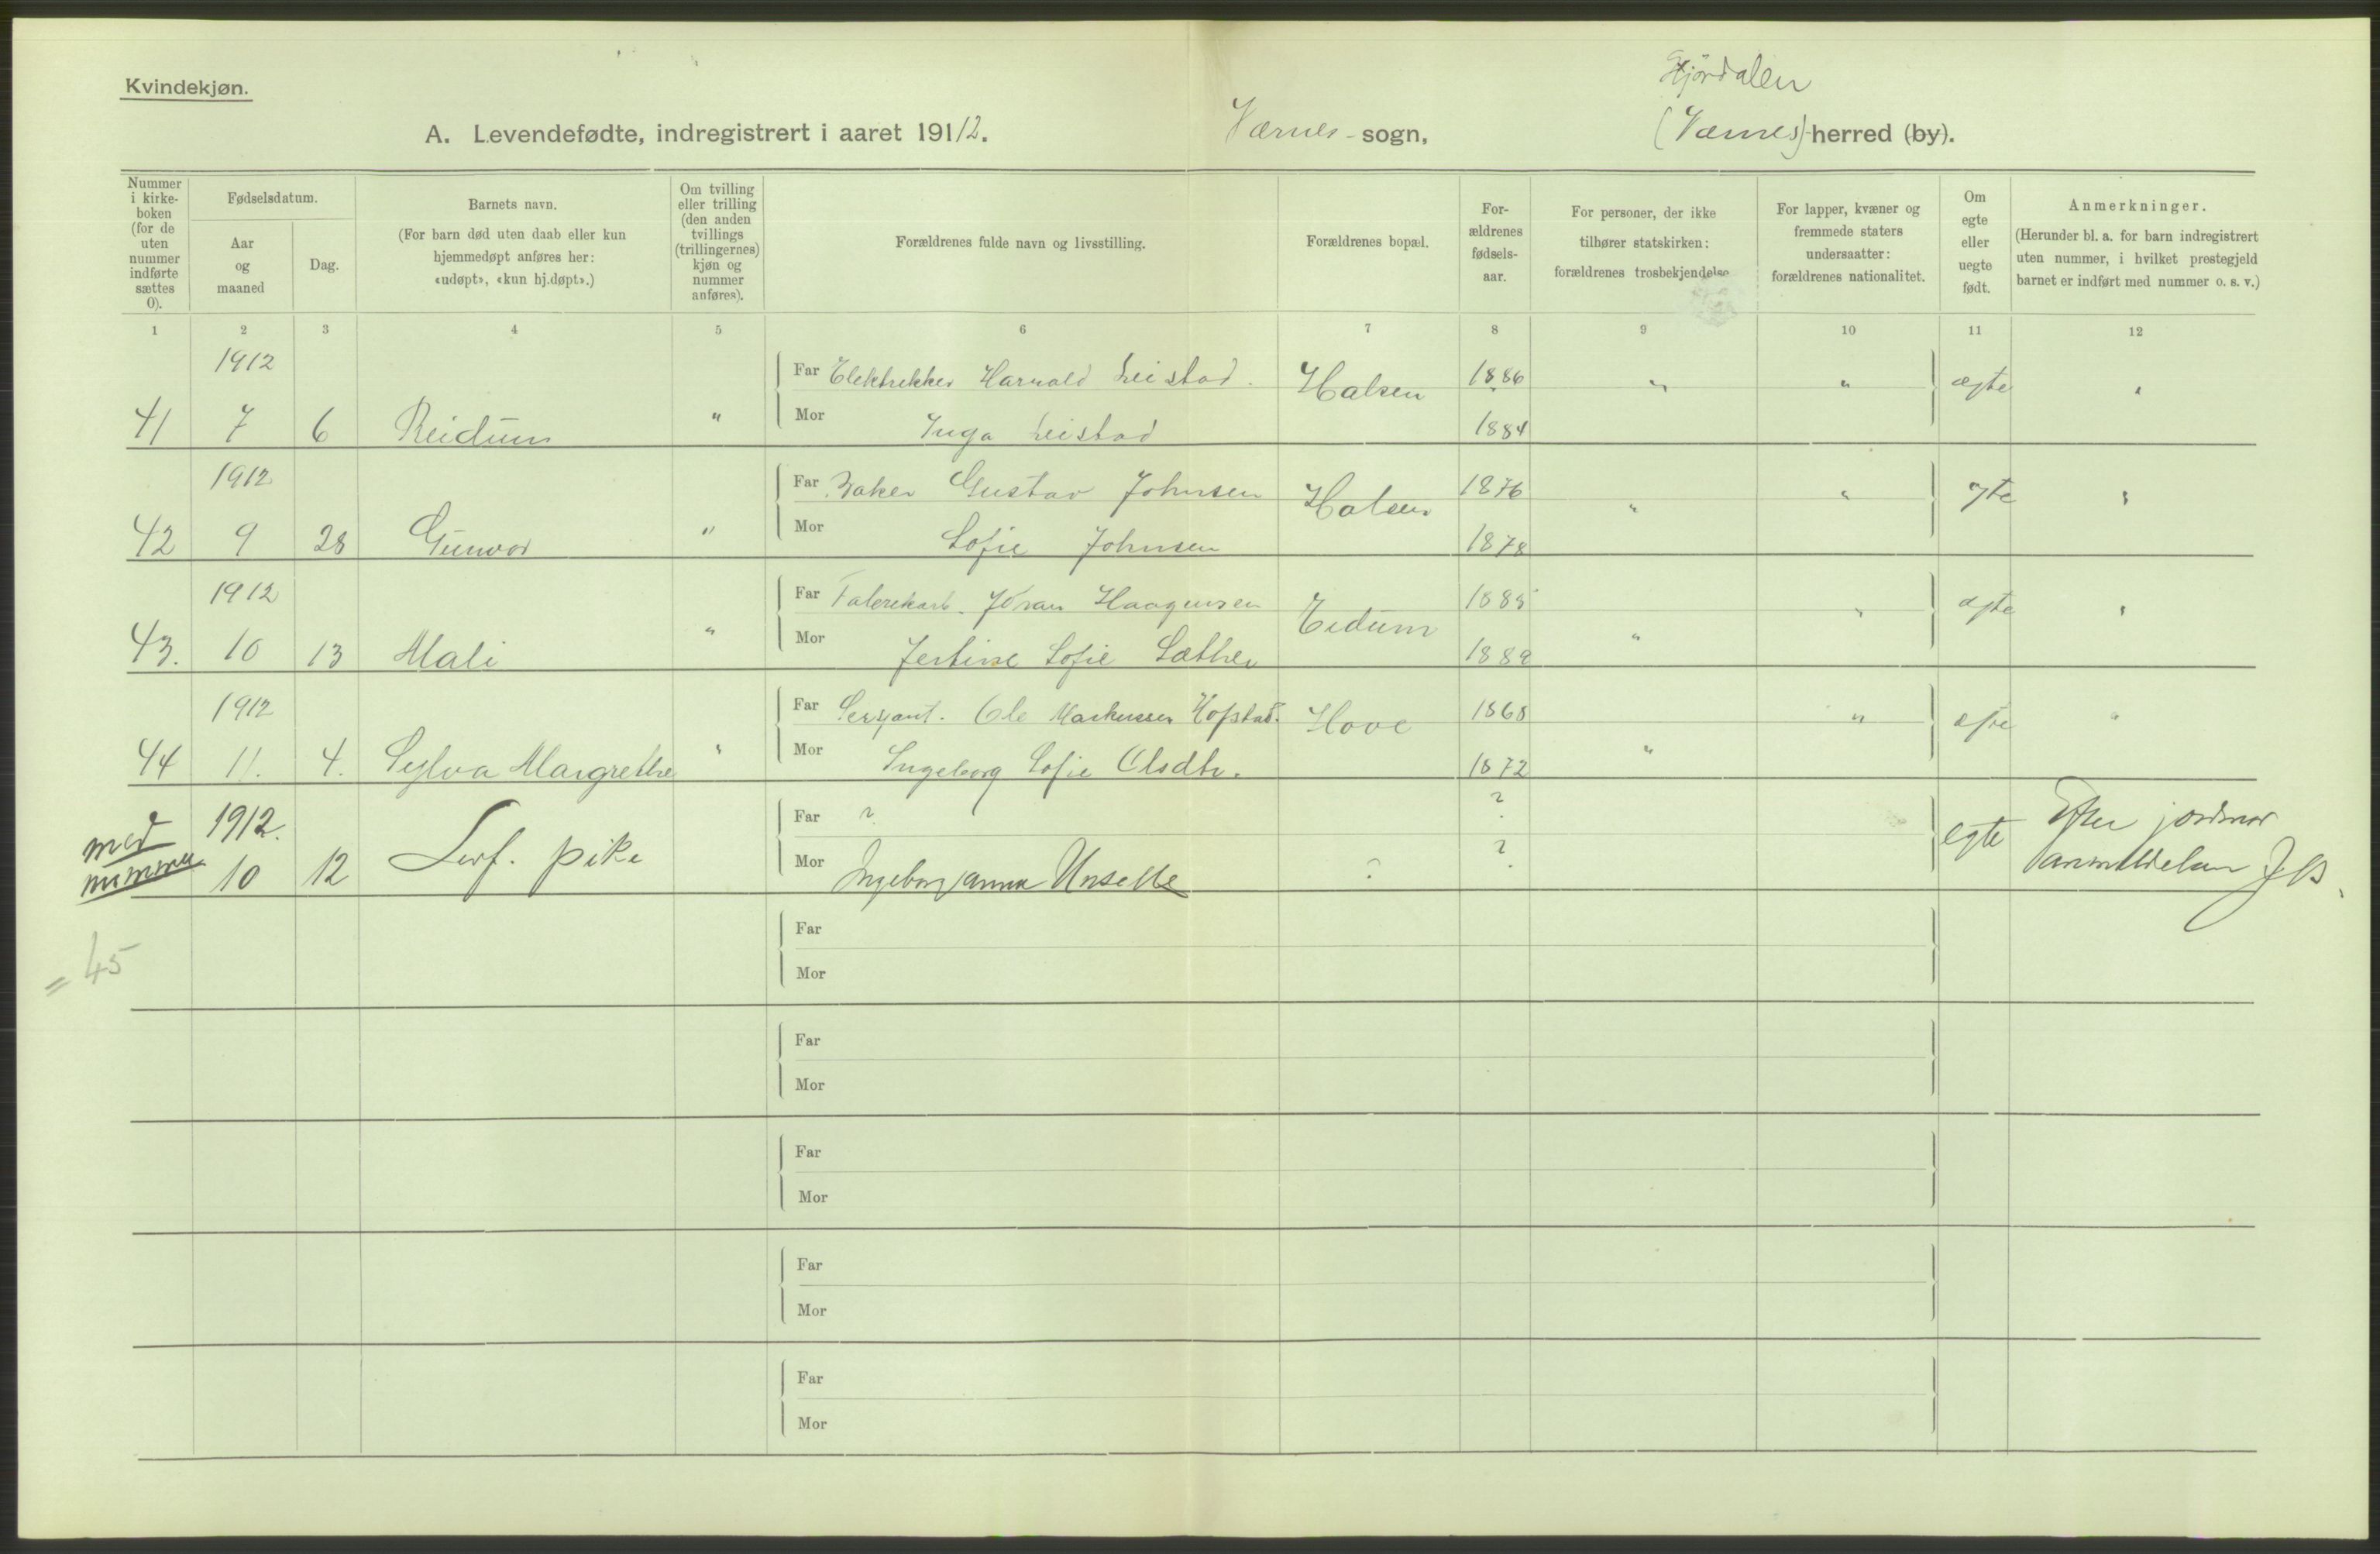 Kvindekjøn.
Stjördalen
A. Levendefødte, indregistrert i aaret 1912. Værnes - sogn, (Værnes)-herred (by).
Nummer i kirke-boken (for de uten nummer indførte sættes 0).
Fødselsdatum.
Aar og maaned
Dag.
Barnets navn.
(For barn død uten daab eller kun hjemmedøpt anføres her: «udøpt», «kun hj.døpt».)
Om tvilling eller trilling (den anden tvillings (trillingernes) kjøn og nummer anføres).
Forældrenes fulde navn og livsstilling.
Forældrenes bopæl.
For-ældrenes fødsels-aar.
For personer, der ikke tilhører statskirken: forældrenes trosbekjendelse
For lapper, kvæner og fremmede staters undersaatter: forældrenes nationalitet.
Om egte eller uegte født.
Anmerkninger.
(Herunder bl. a. for barn indregistrert uten nummer, i hvilket prestegjeld barnet er indført med nummer o. s. v.)
1 2 3 4 5 6 7 8 9 10 11 12
1912 Far Harald Leistad. Halsen 1886 " " ægte "
41 7 6 Reidun " Mor Inga Leistad 1884
1912 Far Baker Gustav Johnsen Halsen 1876 " " "
42 9 28 Gunvor " Mor Sofie Johnsen 1878
1912 Far Johan Haagensen Eidum 1885 " " ægte "
43. 10 13 Mali " Mor Sofie Sæther 1889
1912 Far Sersjant. Ole Markussen Hofstad. Hove 1868 " " "
44 11. 4. Sylva Margrethe " Mor Ingeborg Sofie Olsdtr. 1872
med nummer 1912. Far ? ? egte Efter jordmor
10 12 Levf. pike Mor Ingeborg Anna ? ? anmeldelsen
Far
= 45
Mor
Far
Mor
Far
Mor
Far
Mor
Far
Mor